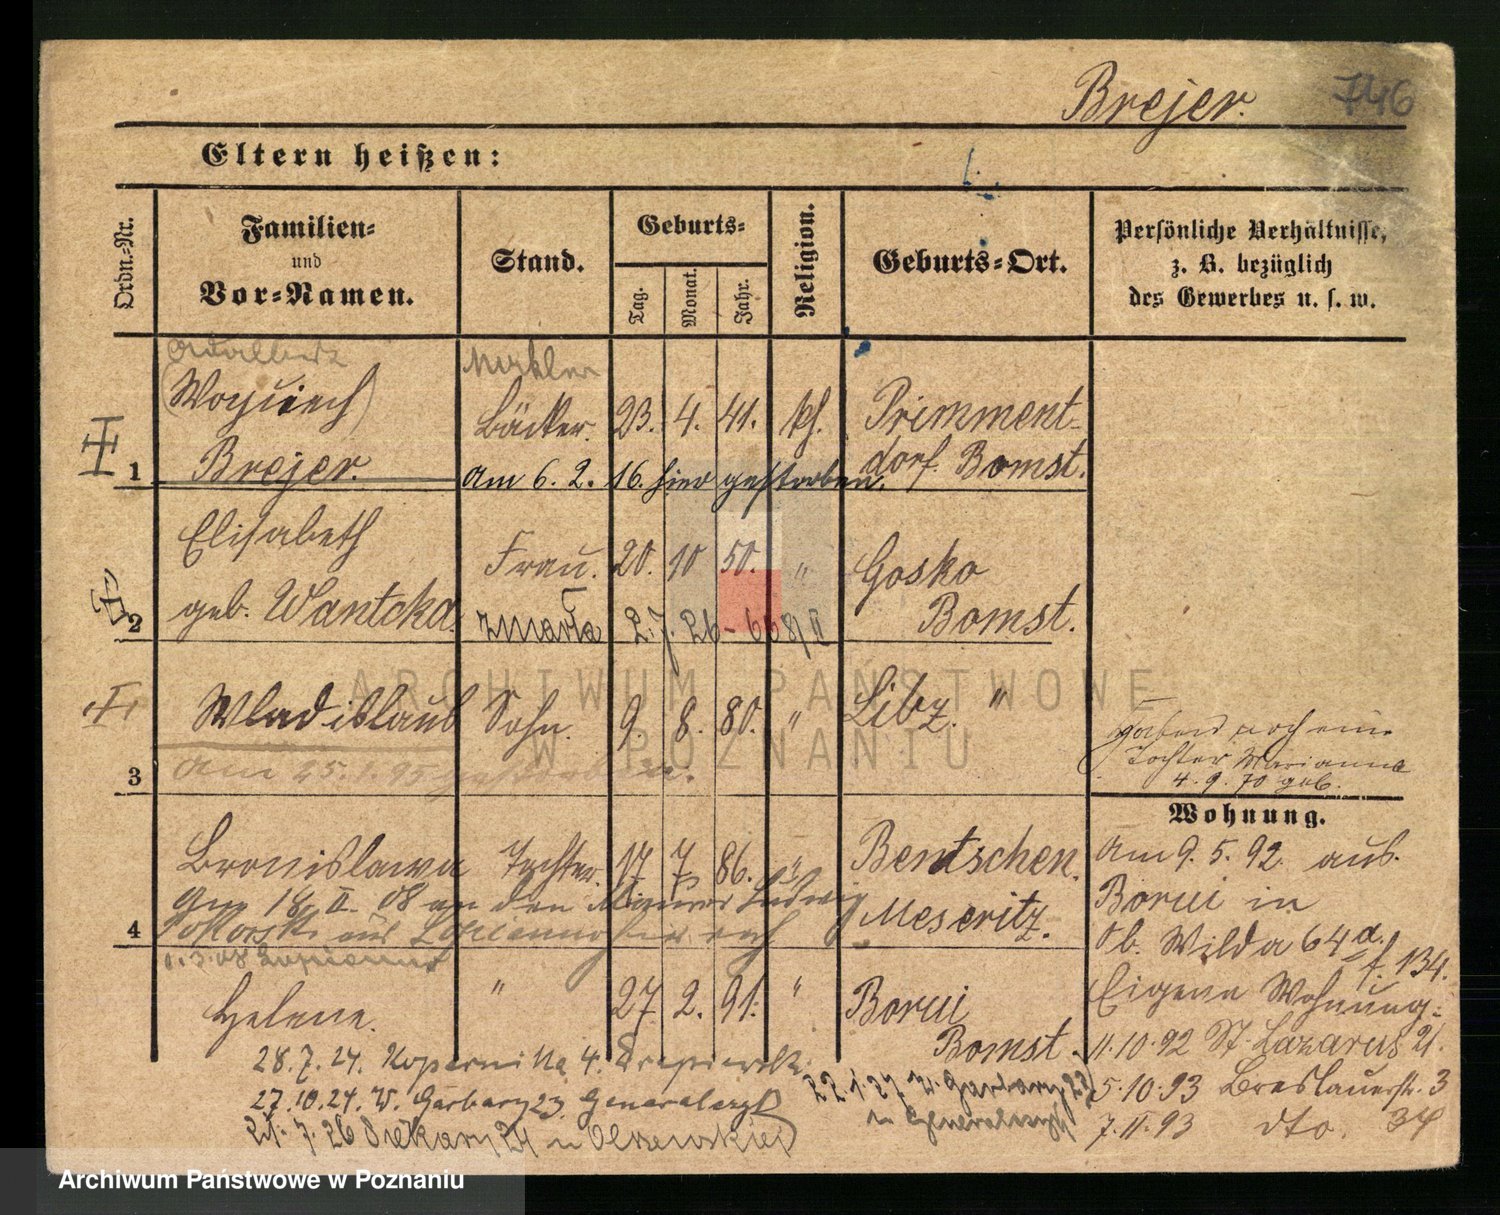 Brejer. 746
Eltern heißen:
Ordn.-Nr.
Familien-
und
Vor-Namen.
Stand.
Geburts-
Tag.
Monat.
Jahr.
Religion.
Geburts-Ort.
Persönliche Verhältnisse,
z. B. bezüglich
des Gewerbes u. s. w.
(Woyciech)
Brejer.
Bäcker. 23. 4. 41. kth. Primment-
dorf. Bomst.
1
am 6. 2. 16. hier gestorben.
Elisabeth
geb. Wantcka.
Frau. 20. 10 50. " Gosko
Bomst.
2
zmarła 2. 7. 26
Wladislaus Sohn. 9. 8. 80. " Libz. "
am 25.1.95 gestorben.
3
haben noch eine
Tochter Marianna
4. 9. 70 geb.
Wohnung.
Bronislawa Tochter. 17 7. 86. " Bentschen.
Meseritz.
Am 18. II. 08 an den Maurer Ludwig
4
Helene. " 27 2. 91. " Borui
Bomst
Am 9. 5. 92. aus.
Borui in
Ob. Wilda 64a. f. 134.
Eigene Wohnung:
11.10.92 St. Lazarus 21.
5.10.93 Breslauerstr. 3
7.11.93 dto. 34
28.7.24. Kopernika 4.
27.10.24. W. Garbary 23. Generalczyk
21. 7. 26 Piekary 24 u Olszewskiej
22.1.27 W. Garbary 23
u Generalczyk
ARCHIWUM PAŃSTWOWE
W POZNANIU
Archiwum Państwowe w Poznaniu